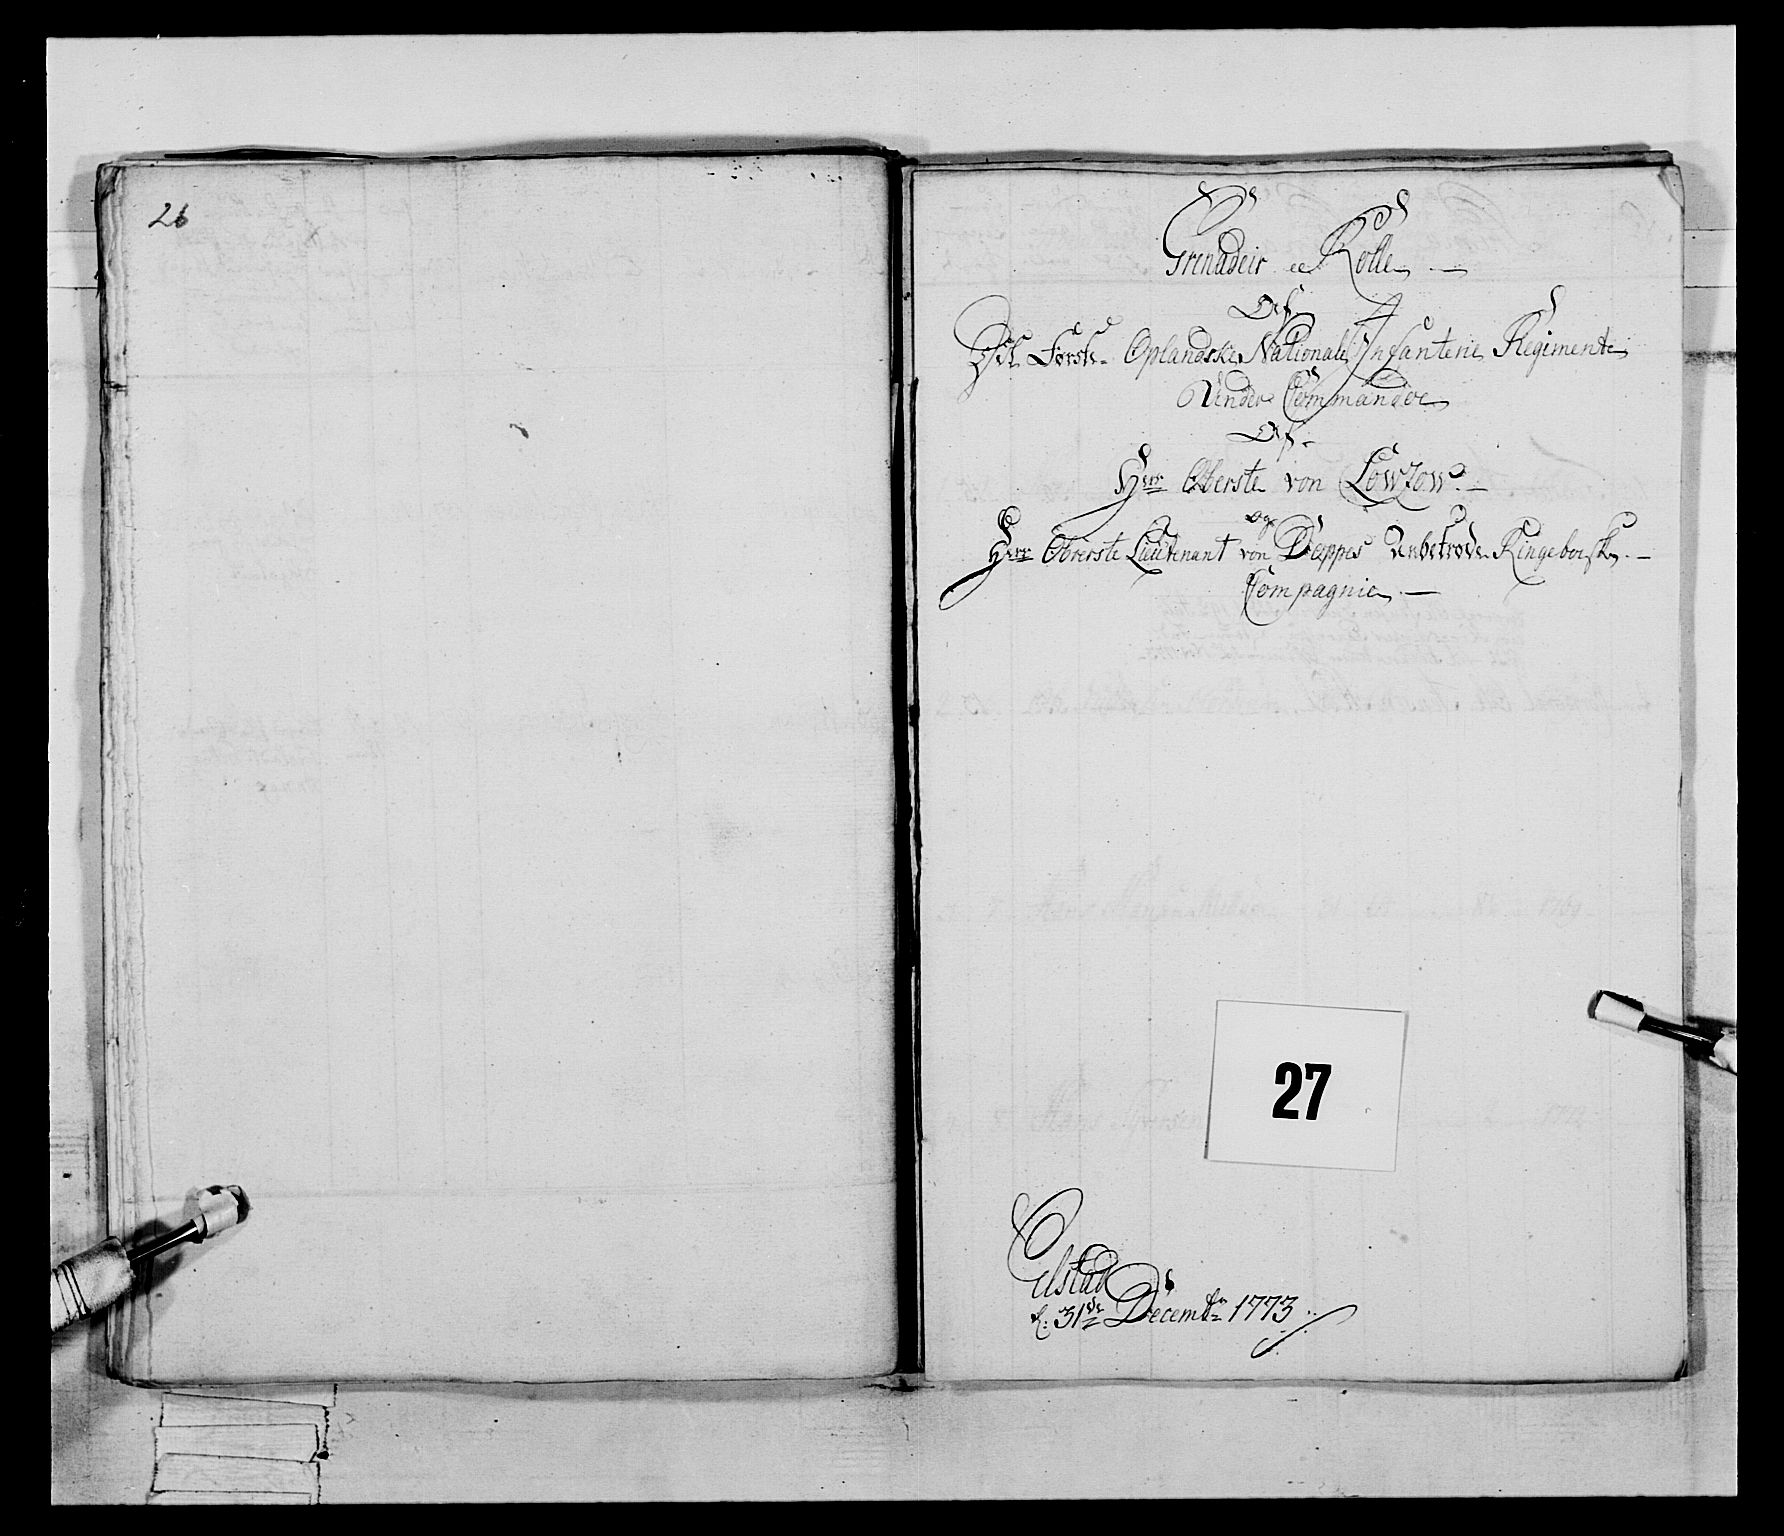 26
Grenadeir Rolle
Af
Det Første Oplandske Nationale Infanterie Regimente
Under Commando
Af
Herr Oberste von Lowzow
og
Herr Oberste Lieutenant von Deppes Anbetrode Ringeboeske
Compagnie
27
Elstad
d: 31de Decembr 1773